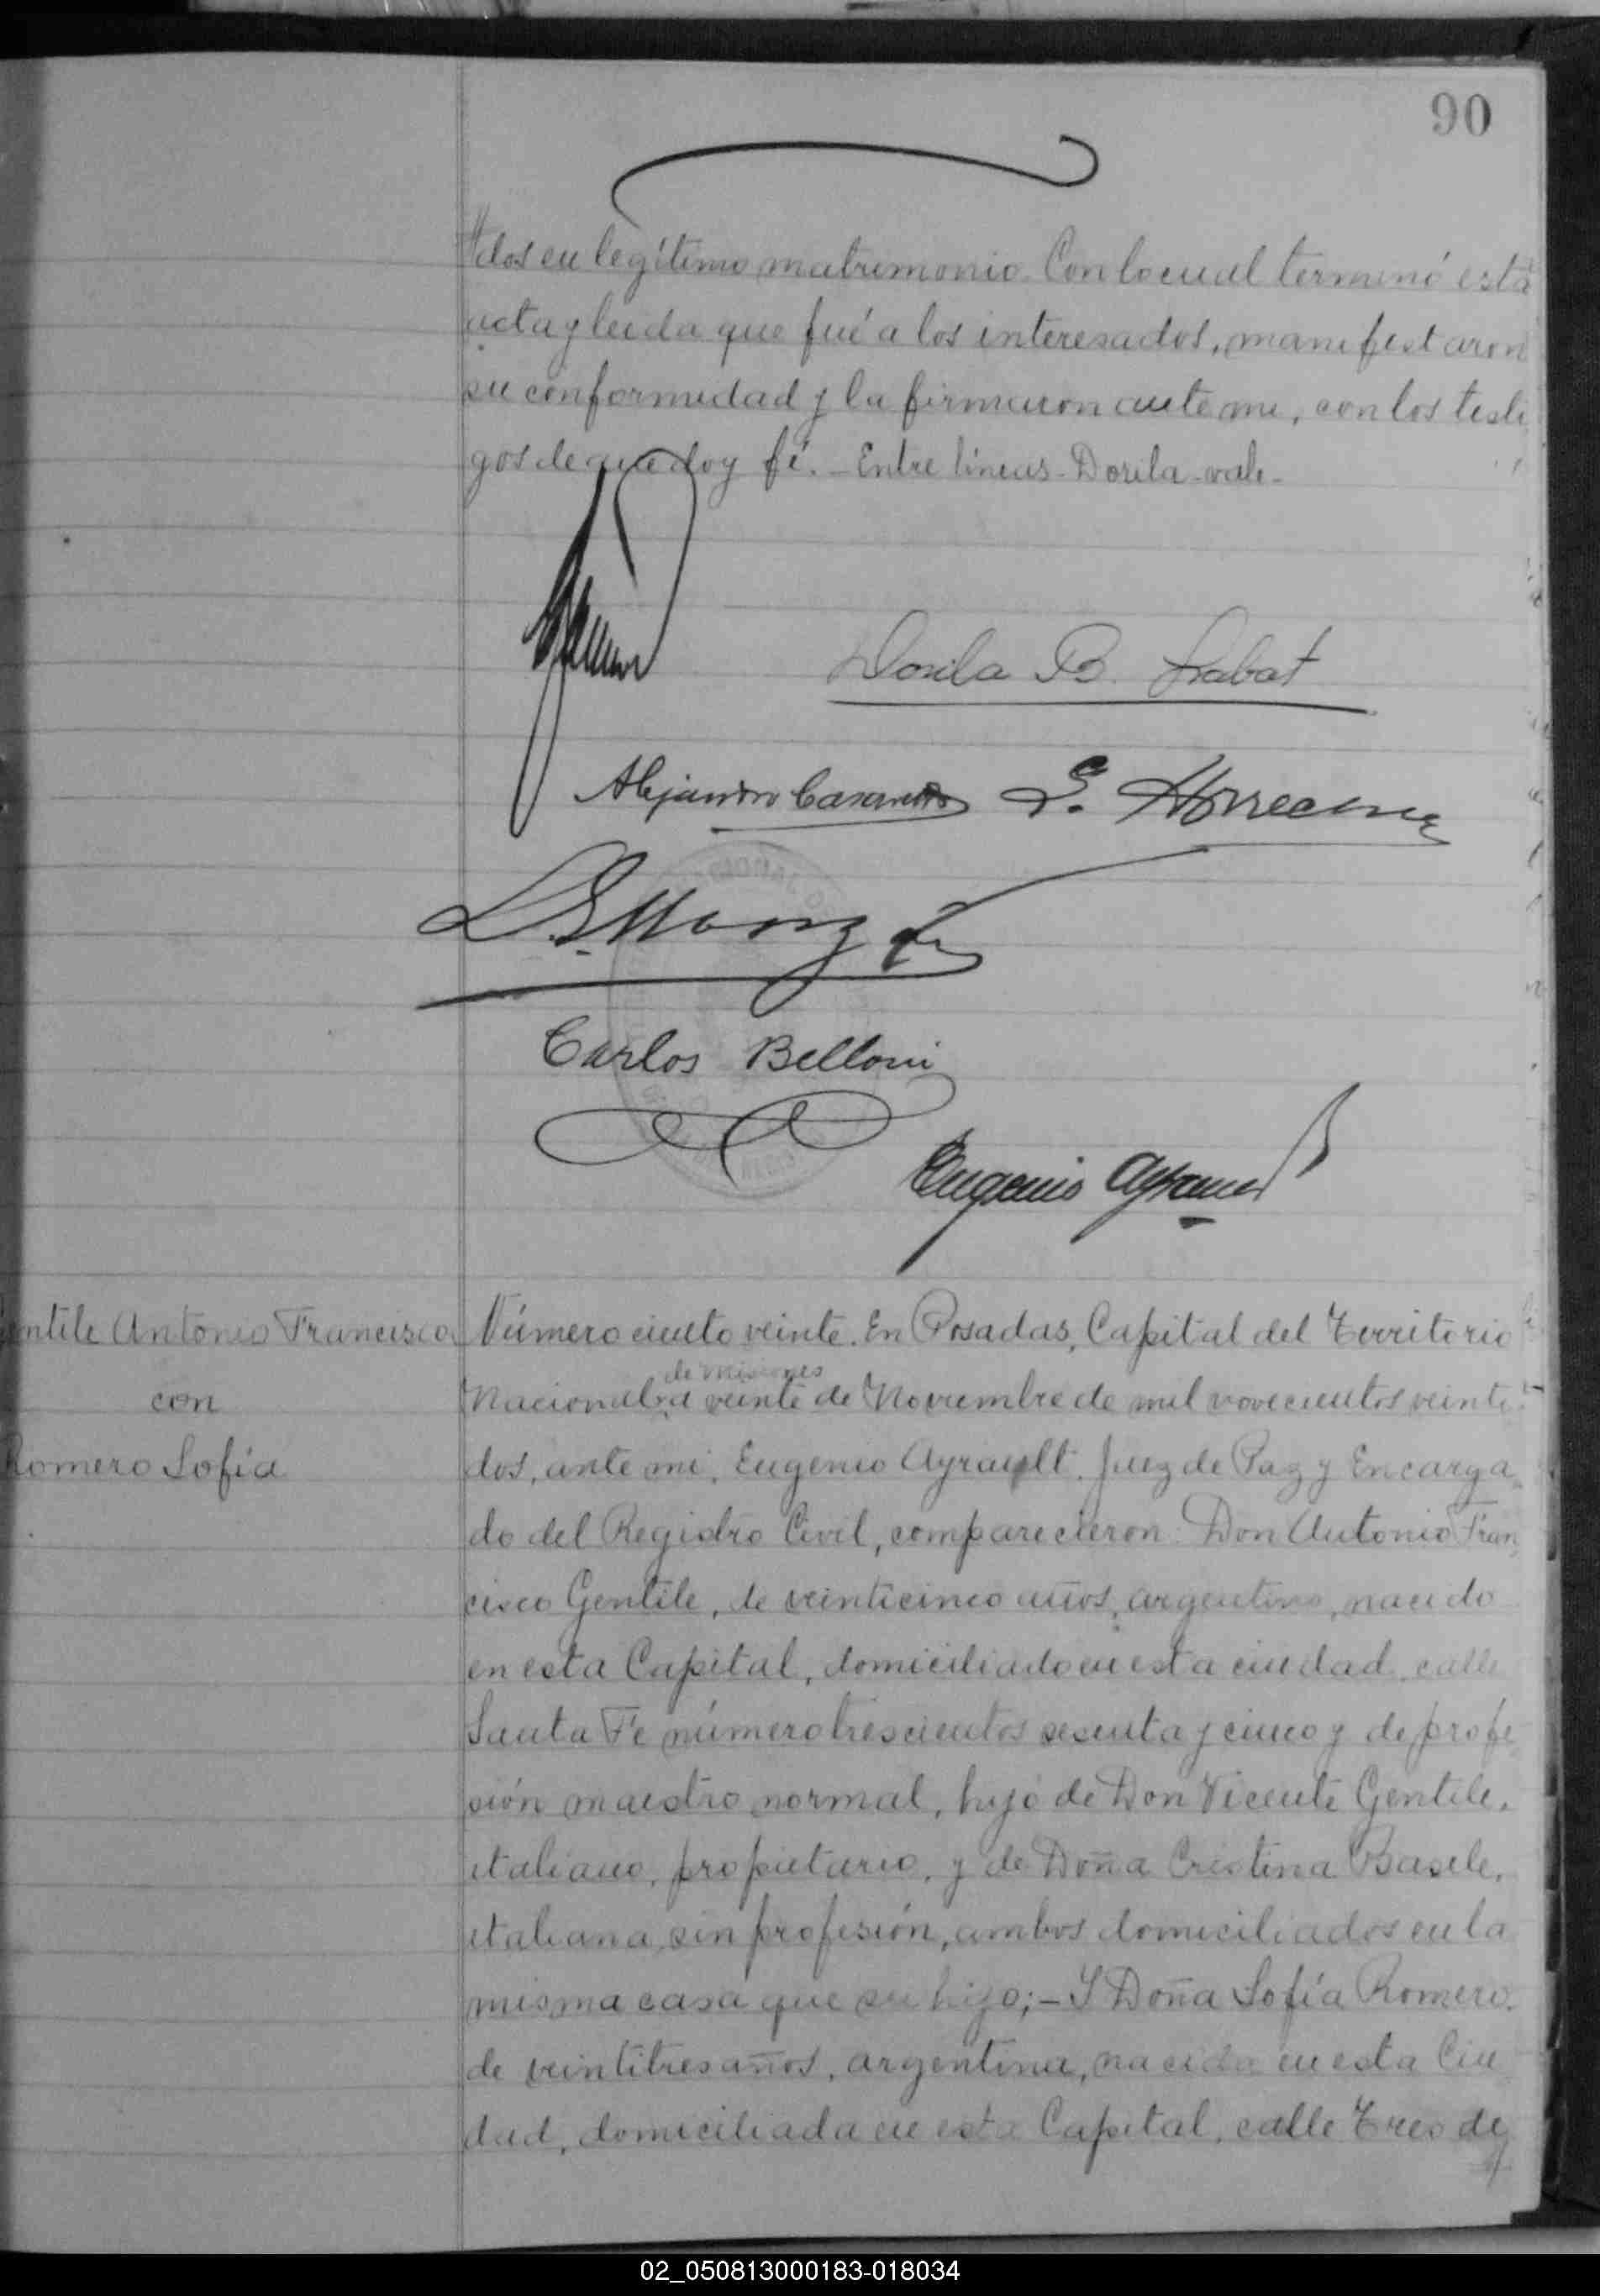 90
dos en legítimo matrimonio. Con lo cual terminó esta
acta y leida que fué a los interesados, manifestaron
su conformidad y la firmaron ante mi, con los testi
gos de que doy fé. - Entre líneas - Dorila - vale -
Dorila B. Labat
Alejandro
L. E.
Carlos Belloni
Eugenio Ayrault
entile Antonio Francisco
con
Romero Sofía
Número ciento veinte. En Posadas, Capital del Territorio
de Misiones
Nacional a veinte de Noviembre de mil novecientos veinti
dos, ante mi, Eugenio Ayrault. Juez de Paz y Encarga
do del Registro Civil, comparecieron: Don Antonio Fran
cisco Gentile, de veinticinco años, argentino, nacido
en esta Capital, domiciliado en esta ciudad, calle
Santa Fé número trescientos sesenta y cinco y de profe
sión maestro normal, hijo de Don Vicente Gentile,
italiano, propietario, y de Doña Cristina Basile,
italiana, sin profesión, ambos domiciliados en la
misma casa que su hijo; - Y Doña Sofía Romero,
de veintitres años, argentina, nacida en esta Ciu
dad, domiciliada en esta Capital, calle Tres de
02_050813000183-018034